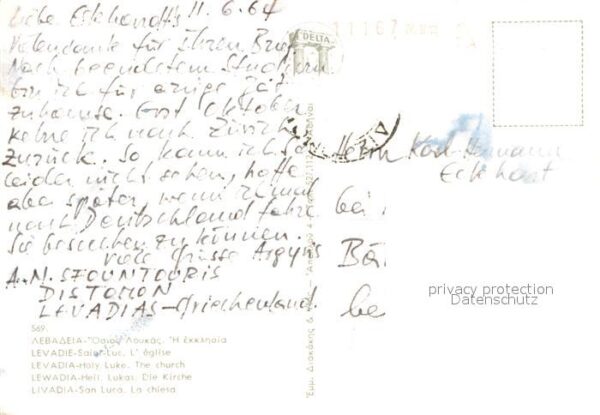 Liebe Eckhardt's 11.6.64
Vielen Dank für Ihren Brief.
Nach beendetem Studium
bin ich für einige Zeit
zuhause. Erst Oktober
kehre ich nach Zürich
zurück. So kann ich Sie
leider nicht sehen, hoffe
aber später, wenn ich mal
nach Deutschland fahre
Sie besuchen zu können.
viele Grüsse Argyris
A.N. SFOUNTOURIS
DISTOMON
LEVADIAS-Griechenland
569
ΛΕΒΑΔΕΙΑ-Ὅσιος Λουκᾶς. Ἡ ἐκκλησία
LEVADIE-Saint-Luc. L' église
LEVADIA-Holy Luke. The church
LEWADIA-Heil. Lukas: Die Kirche
LIVADIA-San Luca. La chiesa
DELTA
11167
Herrn Karl-Hermann
Eckhart
bei
Bä
be
privacy protection
Datenschutz